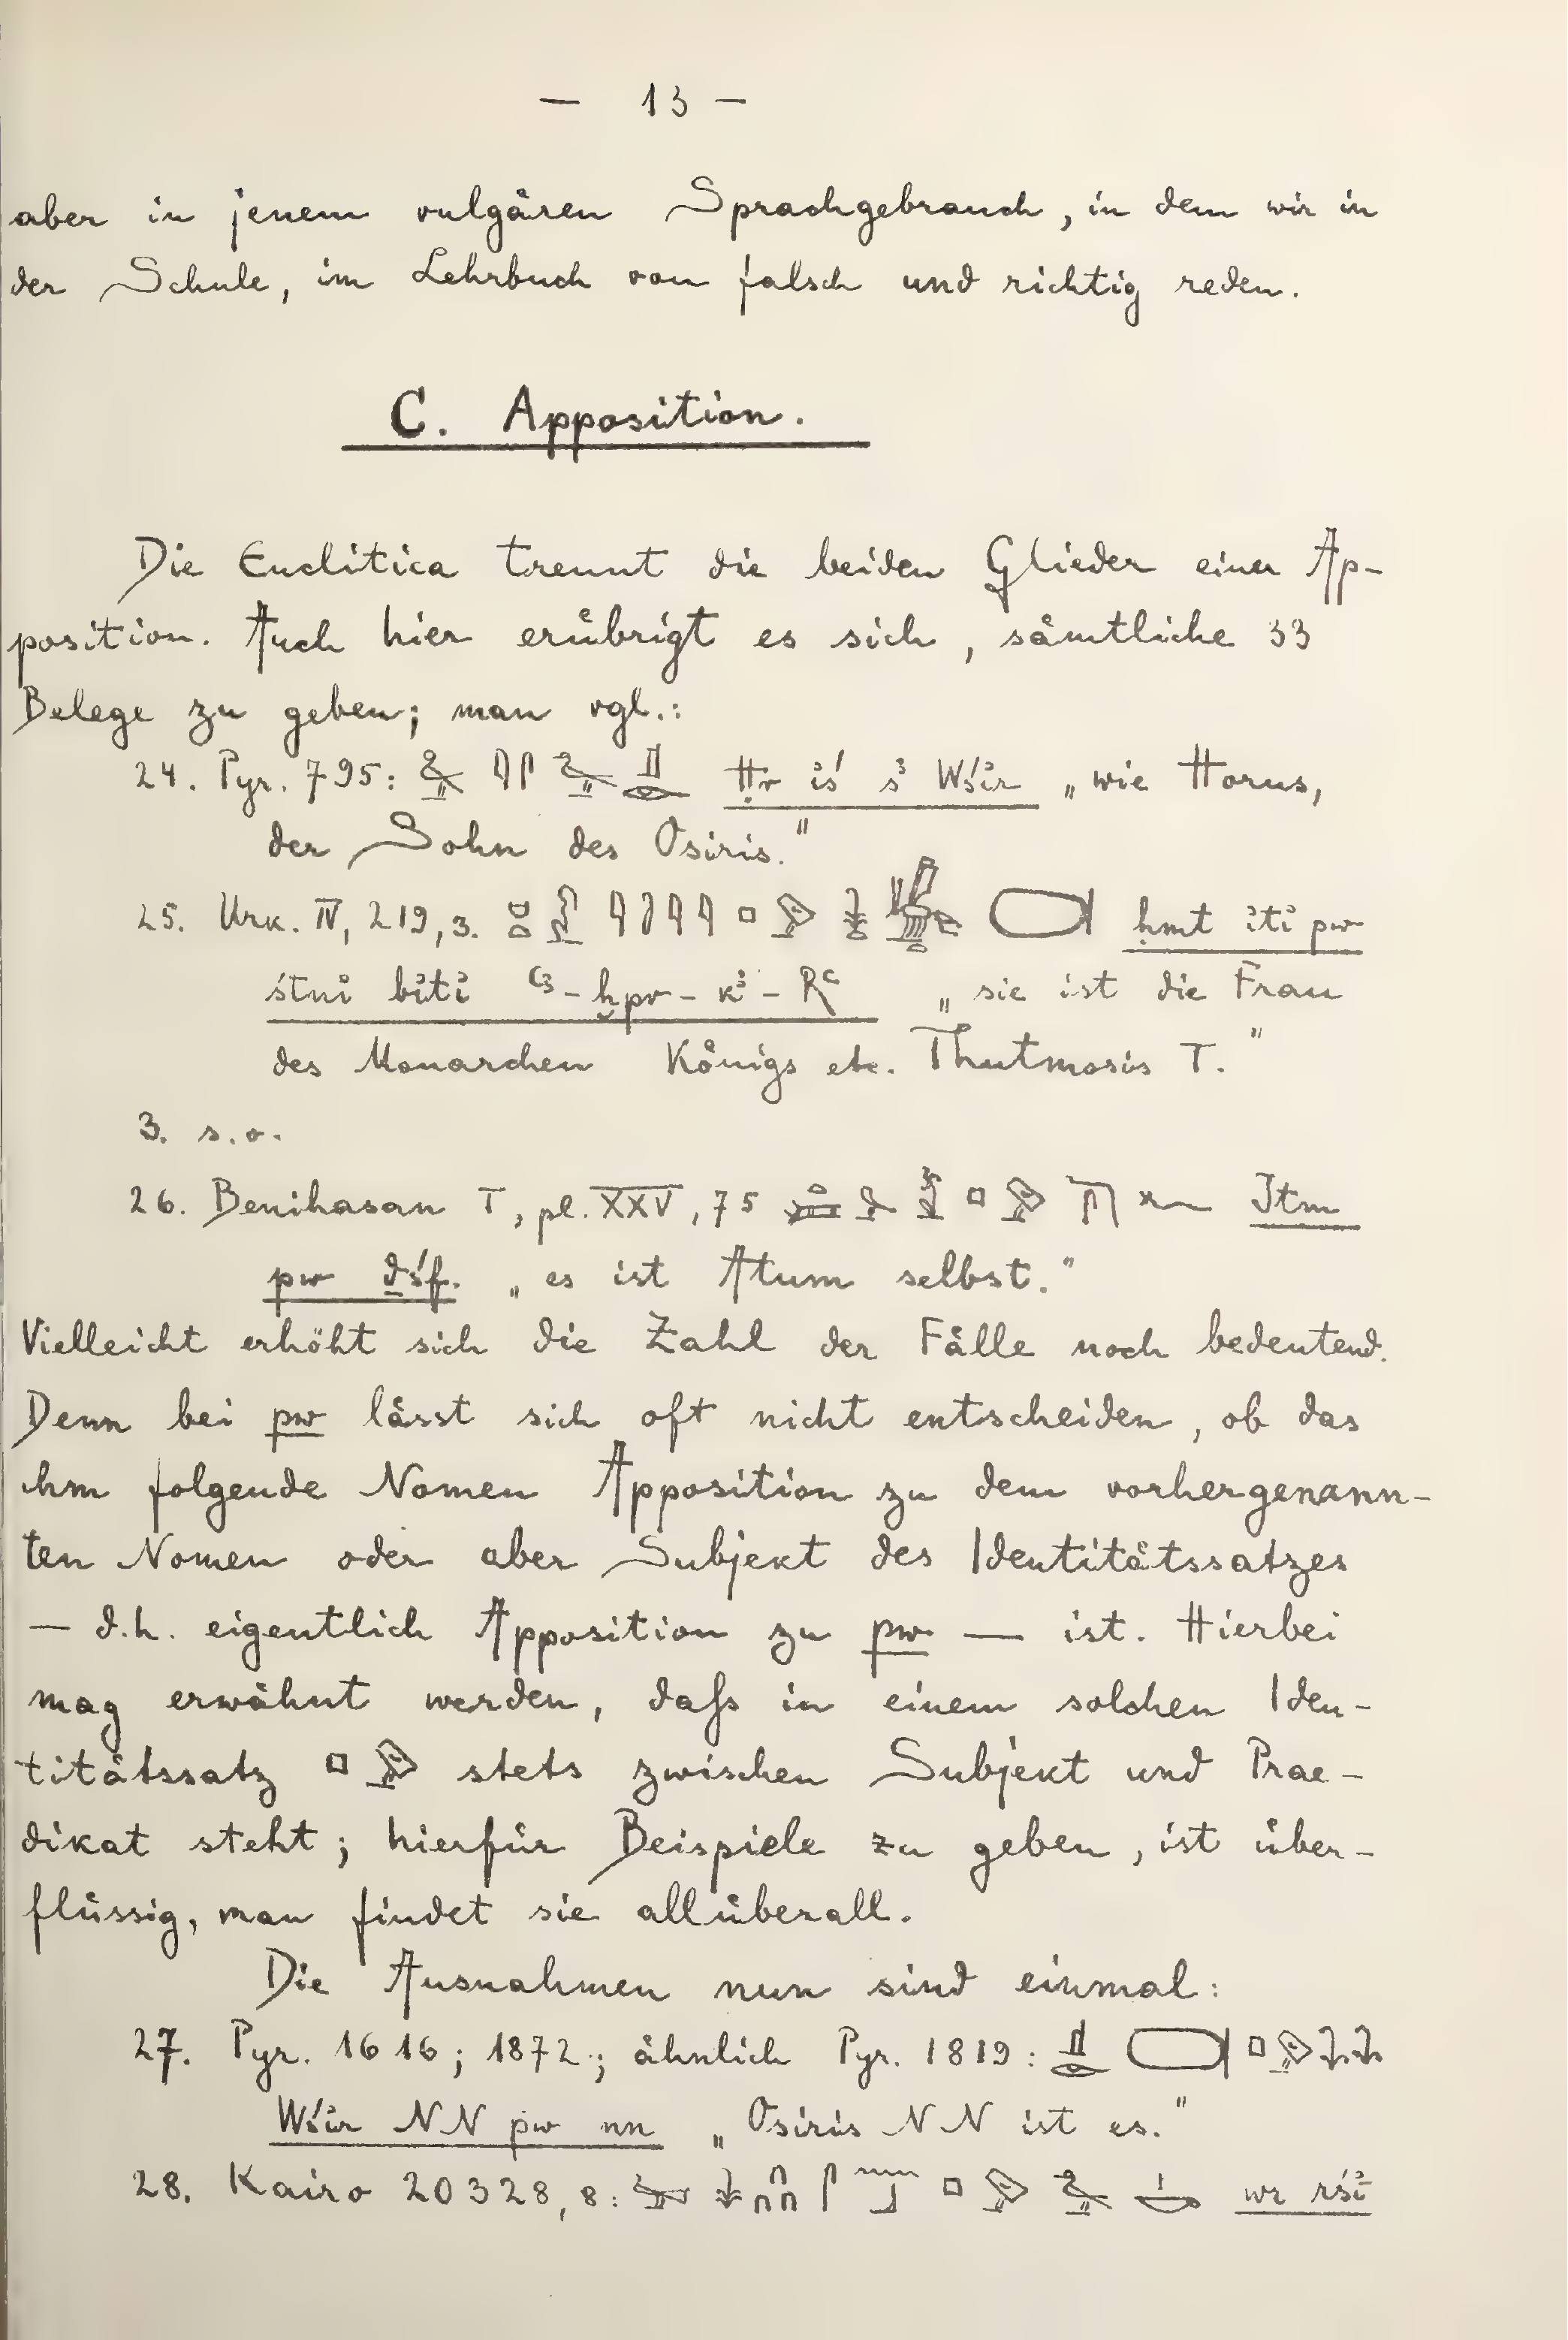 — 13 —
aber in jenem vulgären Sprachgebrauch, in dem wir in
der Schule, im Lehrbuch von falsch und richtig reden.
C. Apposition.
Die Enclitica trennt die beiden Glieder einer Ap-
position. Auch hier erübrigt es sich, sämtliche 33
Belege zu geben; man vgl.:
24. Pyr. 795: Ḥr iś sꜣ Wśir „wie Horus,
der Sohn des Osiris."
25. Urk. IV, 219, 3. ḥmt iti pw
śtni biti Ꜥꜣ-ḫpr-kꜣ-RꜤ „sie ist die Frau
des Monarchen Königs etc. Thutmosis I."
3. s.o.
26. Benihasan I, pl. XXV, 75 Itm
pw ḏśf. „es ist Atum selbst."
Vielleicht erhöht sich die Zahl der Fälle noch bedeutend.
Denn bei pw lässt sich oft nicht entscheiden, ob das
ihm folgende Nomen Apposition zu dem vorhergenann-
ten Nomen oder aber Subjekt des Identitätssatzes
— d.h. eigentlich Apposition zu pw — ist. Hierbei
mag erwähnt werden, daß in einem solchen Iden-
titätssatz stets zwischen Subjekt und Prae-
dikat steht; hierfür Beispiele zu geben, ist über-
flüssig, man findet sie allüberall.
Die Ausnahmen nun sind einmal:
27. Pyr. 1616; 1872; ähnlich Pyr. 1819:
Wśir NN pw nn „Osiris NN ist es."
28. Kairo 20328, 8: wr rśi